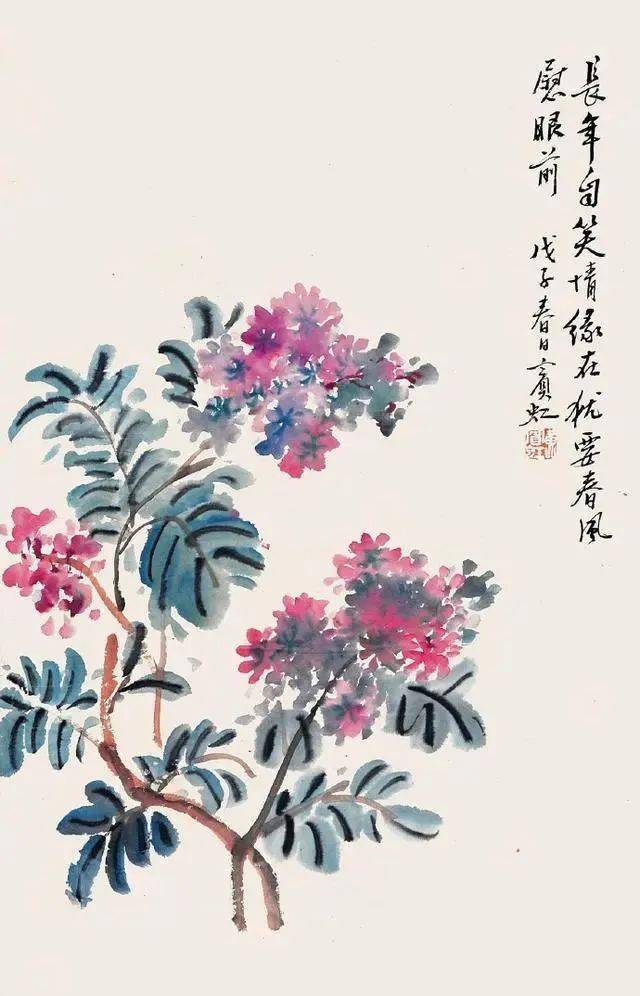 長年自笑情緣在犹要春風
慰眼前 戊子春日賓虹